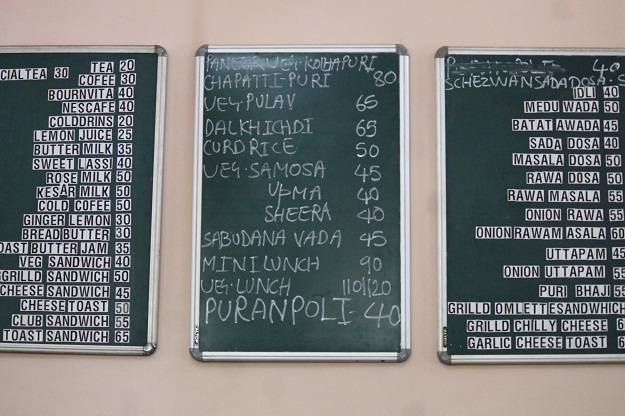 TEA 20
CIALTEA 30 COFEE 30
BOURNVITA 40
NESCAFE 40
COLDDRINS 20
LEMON JUICE 25
BUTTER MILK 35
SWEET LASSI 40
ROSE MILK 50
KESAR MILK 50
COLD COFEE 50
GINGER LEMON 30
BREAD BUTTER 30
OAST BUTTER JAM 35
VEG SANDWICH 40
GRILL SANDWICH 50
CHEESE SANDWICH 45
CHEESE TOAST 50
CLUB SANDWICH 55
TOAST SANDWICH 65
PANEER VEG-KOLHAPURI
CHAPATTI-PURI 80
VEG.PULAV 65
DALKHICHDI 65
CURD RICE 50
VEG.SAMOSA 45
UPMA 40
SHEERA 40
SABUDANA VADA 45
MINI LUNCH 90
VEG-LUNCH 110/120
PURANPOLI- 40
40
SCHEZWANSADADOSA.
IDLI 40
MEDU WADA 50
BATAT AWADA 45
SADA DOSA 40
MASALA DOSA 50
RAWA DOSA 50
RAWA MASALA 55
ONION RAWA 55
ONION RAWAM ASALA 60
UTTAPAM 45
ONION UTTAPAM 55
PURI BHAJI 55
GRILLD OMLETTESANDWICH
GRILLD CHILLY CHEESE
GARLIC CHEESE TOAST